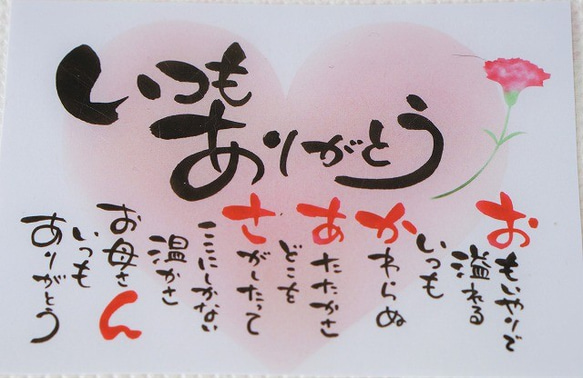 いつも
ありがとう
おもいやりで
溢れる
いつも
かわらぬ
あたたかさ
どこを
さがしたって
ここにしかない
温かさ
お母さん
いつも
ありがとう